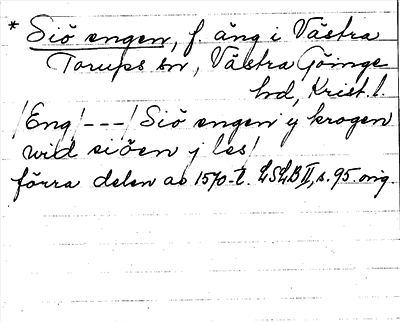 * Siö engen, f. äng i Västra
Torups sn, Västra Göinge
hd, Krist. l.
/Eng/ --- / Siö engen y krogen
wid siöen j les/
förra delen av 1570-t. LSLB II, s. 95. orig.